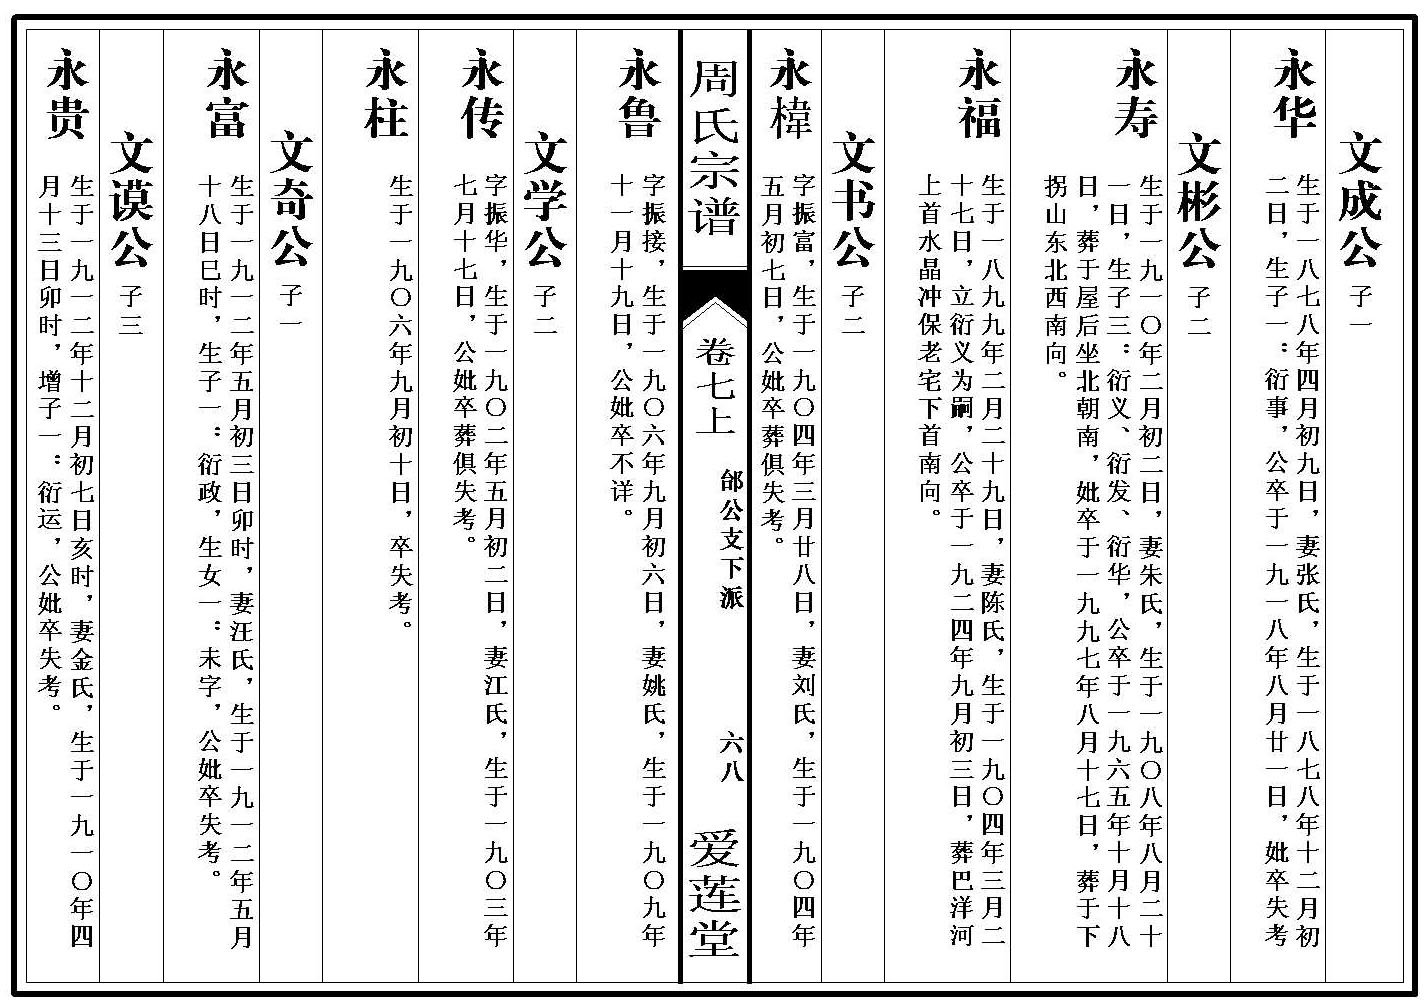 文成公 子一
永华
生于一八七八年四月初九日，妻张氏，生于一八七八年十二月初
二日，生子一：衍事，公卒于一九一八年八月廿一日，妣卒失考
文彬公 子二
永寿
生于一九一〇年二月初二日，妻朱氏，生于一九〇八年八月二十
一日，生子三：衍义、衍发、衍华，公卒于一九六五年十月十八
日，葬于屋后坐北朝南，妣卒于一九九七年八月十七日，葬于下
拐山东北西南向。
永福
生于一八九九年二月二十九日，妻陈氏，生于一九〇四年三月二
十七日，立衍义为嗣，公卒于一九二四年九月初三日，葬巴洋河
上首水晶冲保老宅下首南向。
文书公 子二
永樟
字振富，生于一九〇四年三月廿八日，妻刘氏，生于一九〇四年
五月初七日，公妣卒葬俱失考。
周氏宗谱
卷七上
邰公支下派
六八
爱莲堂
永鲁
字振接，生于一九〇六年九月初六日，妻姚氏，生于一九〇九年
十一月十九日，公妣卒不详。
文学公 子二
永传
字振华，生于一九〇二年五月初二日，妻江氏，生于一九〇三年
七月十七日，公妣卒葬俱失考。
永柱
生于一九〇六年九月初十日，卒失考。
文奇公 子一
永富
生于一九一二年五月初三日卯时，妻汪氏，生于一九一二年五月
十八日巳时，生子一：衍政，生女一：未字，公妣卒失考。
文谟公 子三
永贵
生于一九一二年十二月初七日亥时，妻金氏，生于一九一〇年四
月十三日卯时，增子一：衍运，公妣卒失考。